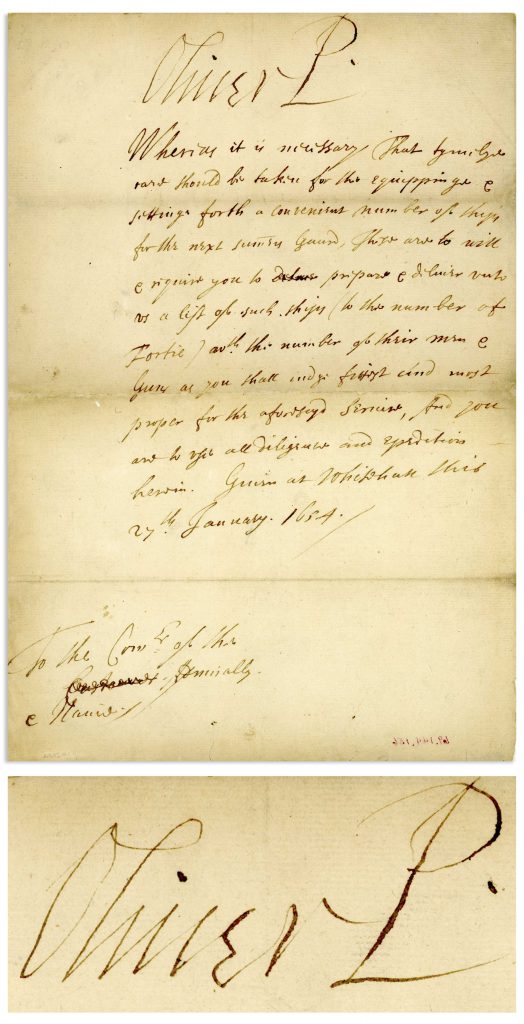 Oliver P.
Whereas it is necessary That tymelye
care should be taken for the equippinge &
settinge forth a convenient number of ships
for the next summers Gaurd, These are to will
& require you to prepare & deliver unto
us a list of such ships (to the number of
Fortie) wth the number of their men &
Guns as you shall iudge fittest and most
proper for the aforesayd service, And you
are to use all diligence and expedition
herein. Given at Whitehall this
27th January. 1654.
To the Comrs of the
Admiralty.
& Navie.
Oliver P.